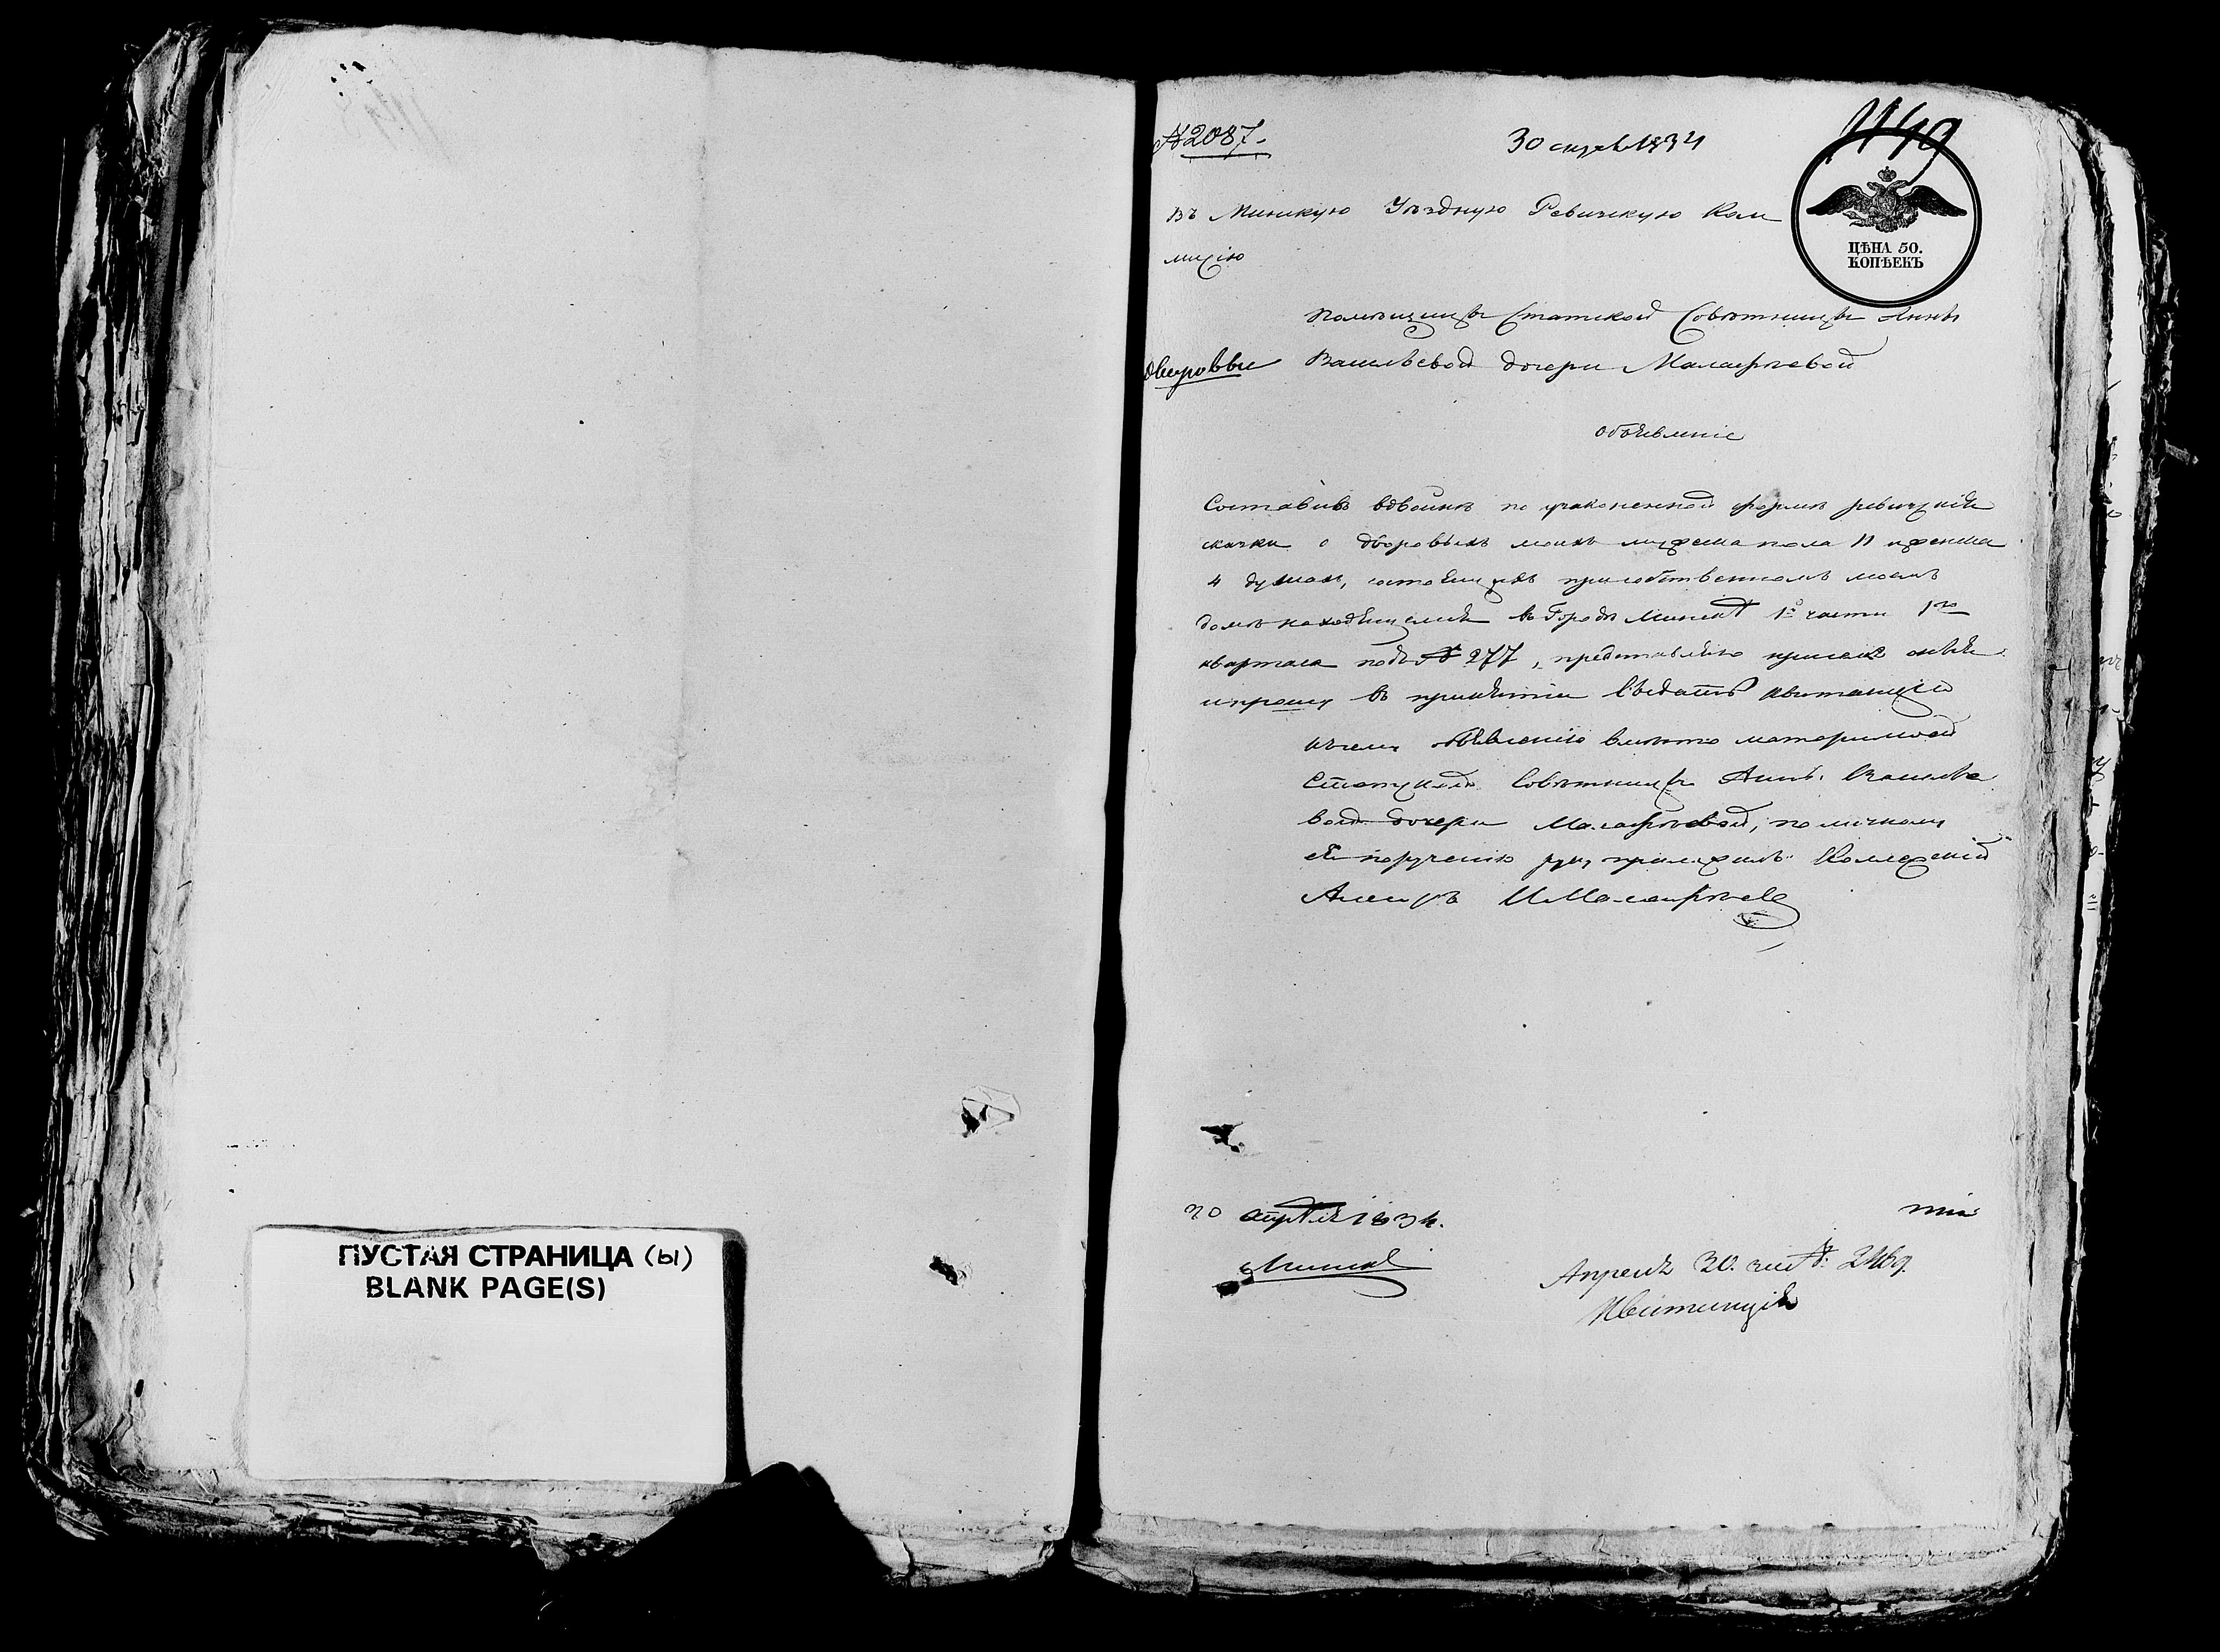 ПУСТАЯ СТРАНИЦА (ы)
BLANK PAGE(S)
№ 2087.
30 апреля 1834
1149
ЦѢНА 50.
КОПѢЕКЪ
Въ Минскую Уѣздную Ревизскую Ком
мисію
Помѣщицы Статской Совѣтницы Анны
Васильевой дочери Малафѣевой
дворовые
объявленіе
Составивъ вдвойнѣ по узаконенной формѣ ревизскія
сказки о дворовыхъ моихъ мужеска пола 11 и женска
4 душахъ, состоящихъ при собственномъ моемъ
домѣ находящемся въ Городѣ Минскѣ 1й части 1го
квартала подъ № 277, представляю при семъ оныя
и прошу въ принятіи выдать квитанцію
къ сему объявленію вмѣсто матери моей
Статской Совѣтницы Анны Василье
вой дочери Малафѣевой, по личному
ея порученію руку приложилъ Коллежскій
Асесоръ И Малафѣевъ
30 апрѣля 1834.
Минскъ
Апреля 30. 
Квитанцію